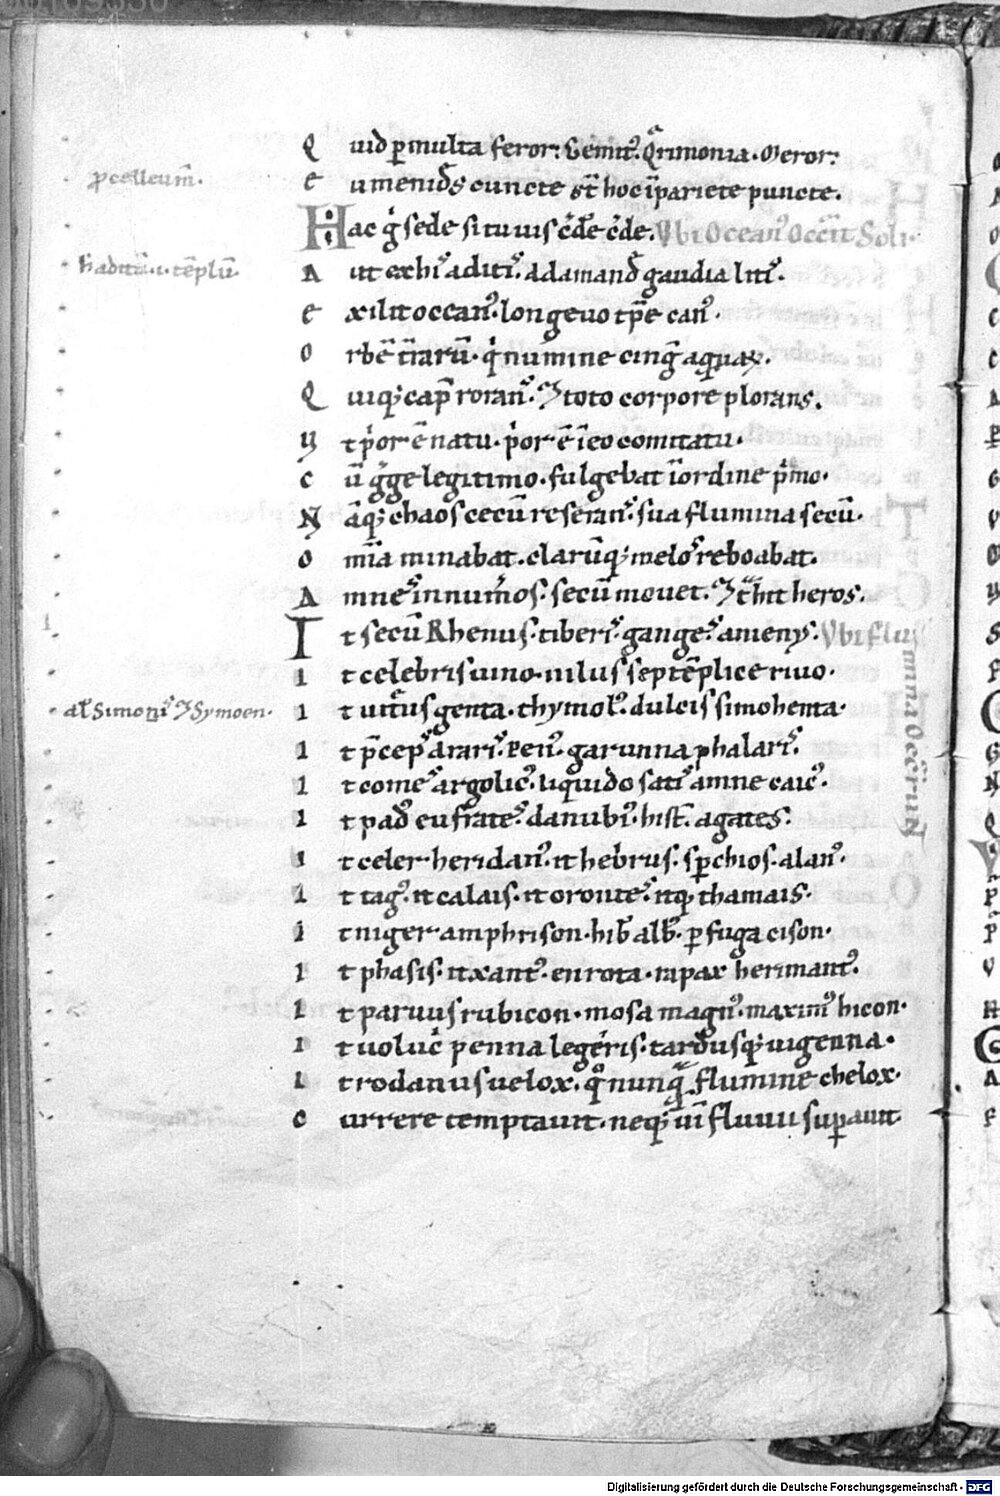 Q uid ꝑ multa feror: Venit᷒. Qͣrimonia. Oeror:
ꝓcelleum̅.
e umenid̅s cuncte st̅ hoc i̅pariete puncte.
Hac q͛ sede situ uis c̅de c̅de. Vbi Ocean᷒ Occ̅it Soli.
h̅ aditu̅ .i. te̅plu̅.
A ut ex hi᷒ aditi᷒. adamand̅ gaudia liti᷒.
e xilit ocean᷒. longeuo tp̅e can᷒.
O rbe̅ t̅raru̅. qͥ numine cing̅ aquaꝝ.
Q uiq; cap̅ roran᷒. ⁊ toto corpore plorans.
U t pͥor e̅ natu. pͥor e̅ i̅ eo comitatu.
C u̅ g͛ge legitimo. fulgebat i̅ ordine pͥmo.
N a̅q; chaos cecu̅ reseran᷒. sua flumina secu̅.
O mi̅a minabat. claru̅q; melo᷒ reboabat.
A mne᷒ innum̅os. secu̅ mouet. ⁊ t̅hit heros.
I t secu̅ Rhenus. tiberi᷒. gange᷒. amenys. Vbi flu
mina occ̅rru̅t
I t celebris uino. nilus septe̅plice riuo.
al̅ Simoni᷒ ⁊ Symoen.
I t uit͛us genta. thymol᷒. dulcis simohenta.
I t p̅cep᷒ arari᷒. Ren᷒. garunna phalari᷒.
I t come᷒ argolic᷒. liquido sati᷒ amne caic᷒.
I t pad᷒ eufrate᷒. danubi᷒. hist̅. agates.
I t celer heridan᷒. it hebrus. sꝑchios. alan᷒.
I t tag᷒. it calais. it oronte᷒. itq; thamais.
I t niger amphrison. hib̅ alb̅. ꝑ fuga cison.
I t phasis. it xant᷒. en rota. rapax herimant᷒.
I t paruus rubicon. mosa magn᷒. maxim᷒ hicon.
I t uoluc͛ penna legeris. tardusq; uigenna.
I t rodanus uelox. qͦ nunqͣ flumine chelox.
C urrere temptauit. neq; ui̅ fluuii suꝑauit.